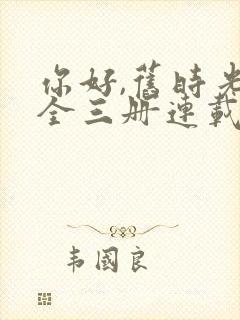 你好,舊時光
全三册連載
韦國良